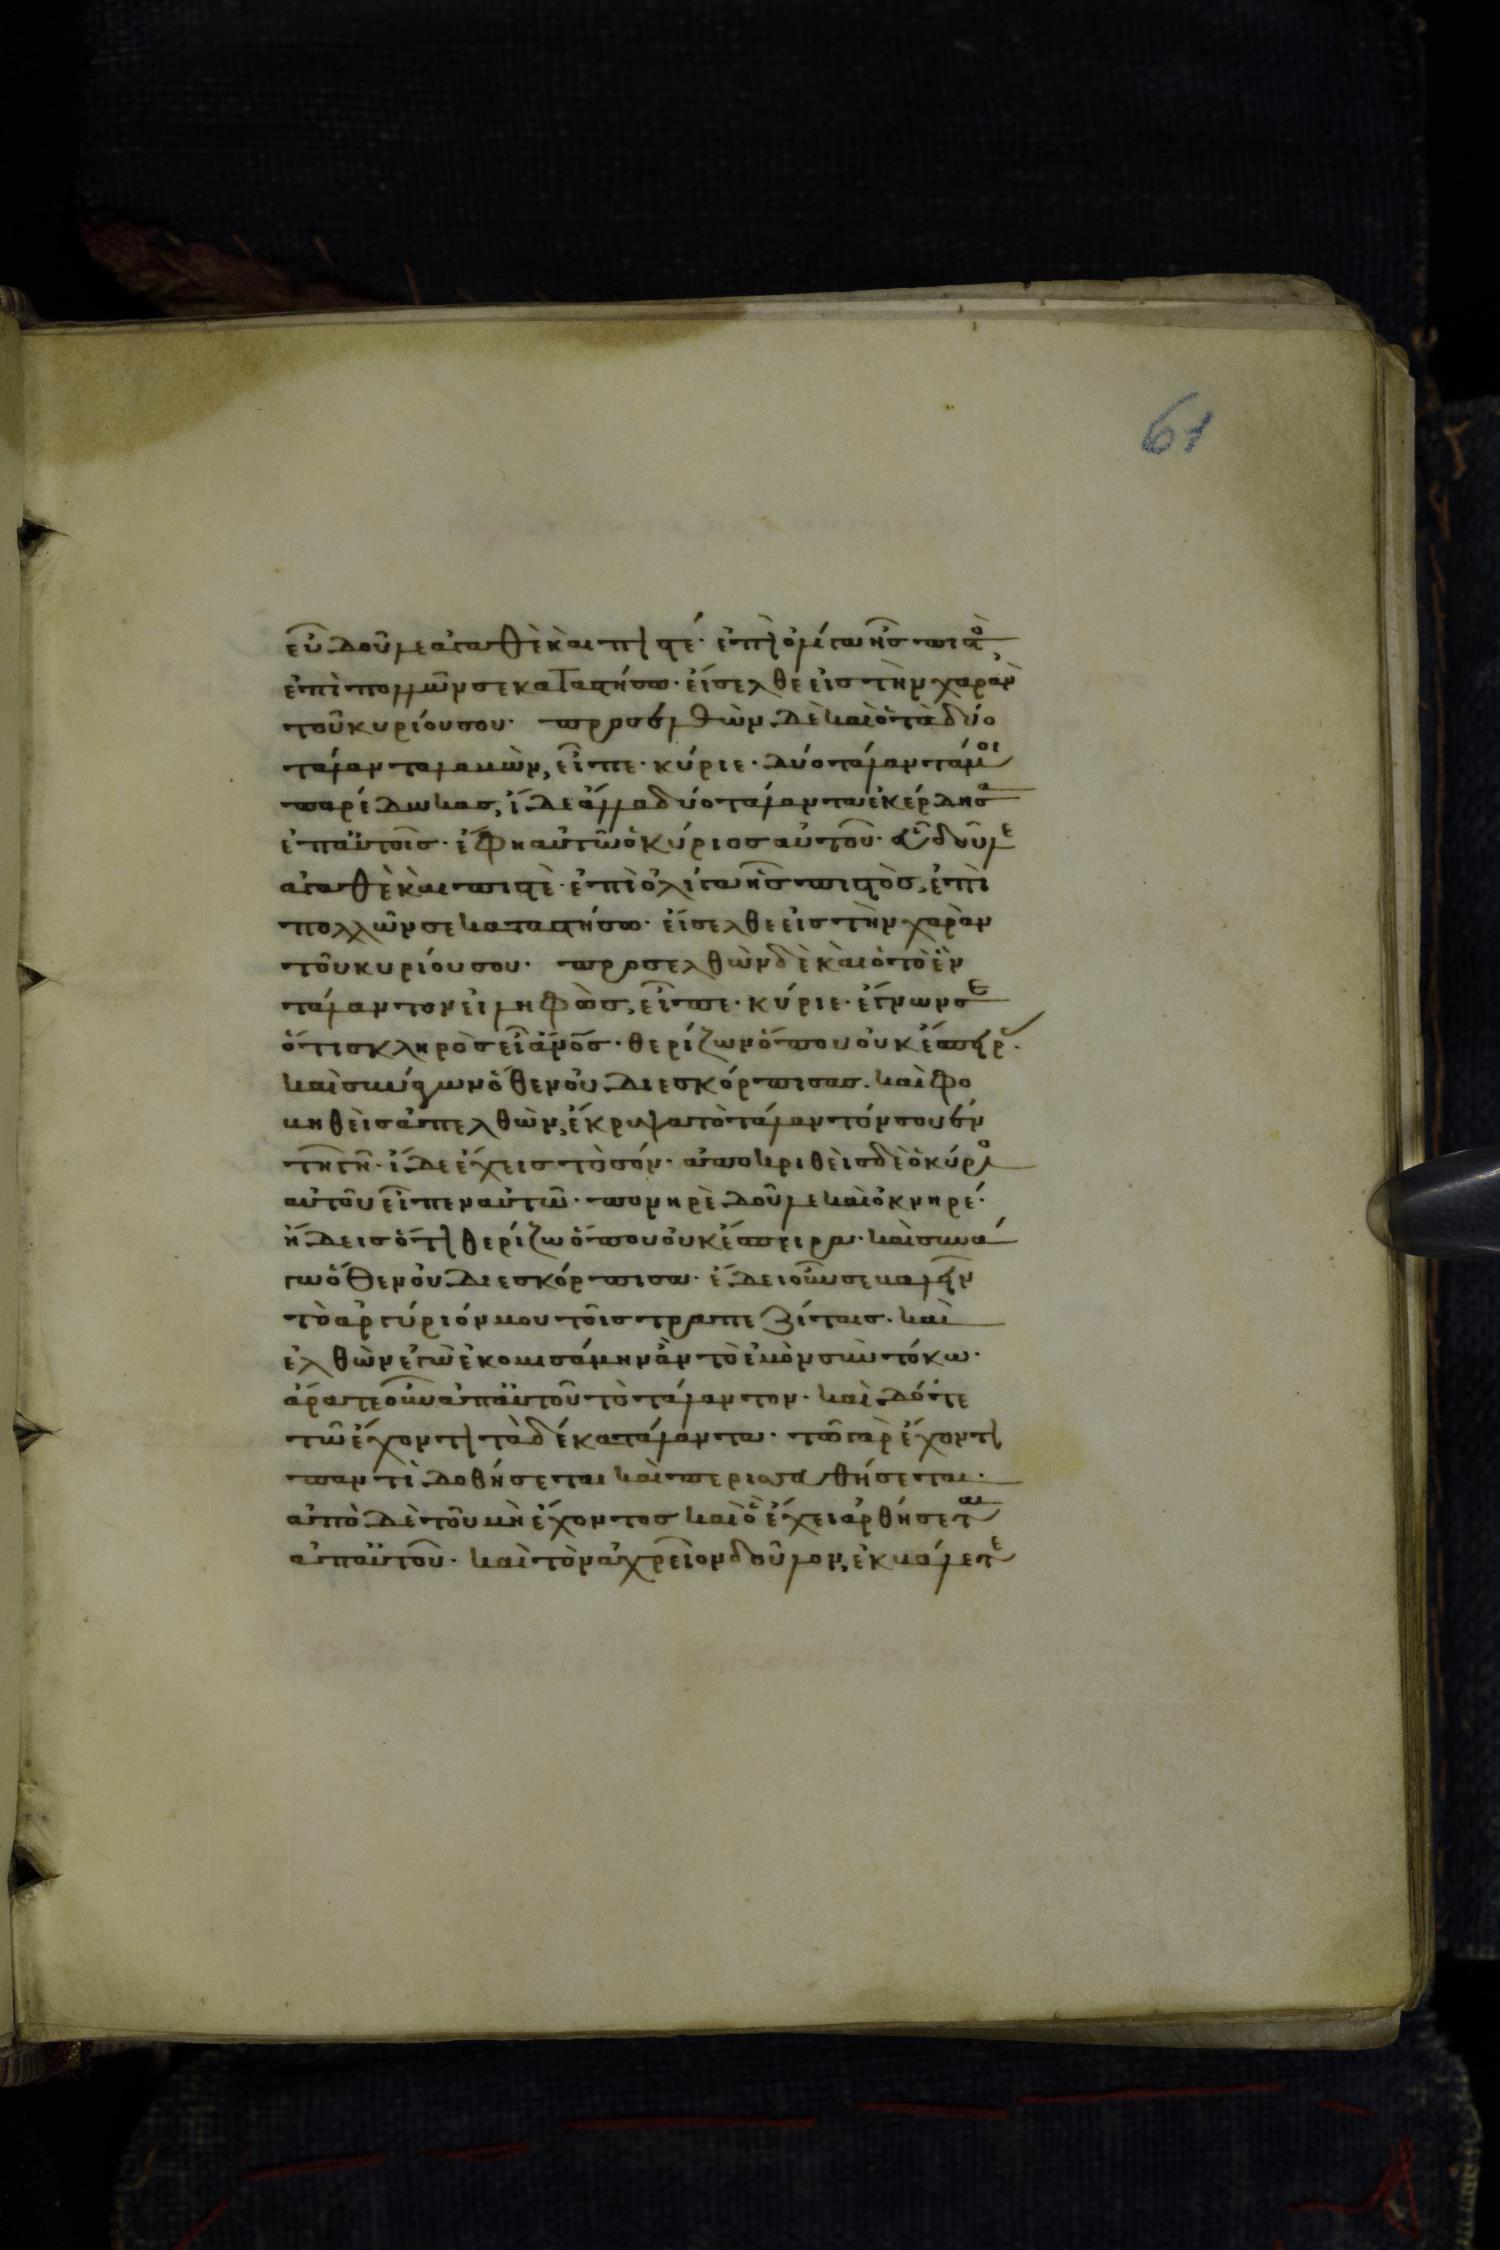 61
εὖ δοῦλε ἀγαθὲ καὶ πιστέ· ἐπὶ ὀλίγα ἦς πιστὸ
ἐπὶ πολλῶν σε καταστήσω· εἴσελθε εἰς τὴν χαρὰν
τοῦ κυρίου σου· προσελθὼν δὲ καὶ ὁ τὰ δύο
τάλαντα λαβὼν, εἶπε· κύριε· δύο τάλαντά μοι
παρέδωκας, ἴδε ἄλλα δύο τάλαντα ἐκέρδησα
ἐπ αὐτοῖς· ἔφη αὐτῶ ὁ κύριος αὐτοῦ· εὖ δοῦλε
ἀγαθὲ καὶ πιστὲ· ἐπὶ ὀλίγα ἦς πιστὸς, ἐπὶ
πολλῶν σε καταστήσω· εἴσελθε εἰς τὴν χαρὰν
τοῦ κυρίου σου· προσελθὼν δὲ καὶ ὁ τὸ ἓν
τάλαντον εἰληφὼς, εἶπε· κύριε· ἔγνων σε
ὅτι σκληρὸς εἶ ἄνος· θερίζων ὅπου οὐκ ἔσπειρ
καὶ συνάγων ὅθεν οὐ διεσκόρπισας. καὶ φο
βηθεὶς ἀπελθὼν, ἔκρυψα τὸ τάλαντόν σου ἐν
τῆ γῆ· ἴδε ἔχεις τὸ σόν· ἀποκριθεὶς δὲ ὁ κύριο
αὐτοῦ εἶπεν αὐτῶ· πονηρὲ δοῦλε καὶ ὀκνηρέ·
ἤδεις ὅτι θερίζω ὅπου οὐκ ἔσπειρα· καὶ συνά
γω ὅθεν οὐ διεσκόρπισα· ἔδει οὖν σε βαλεῖν
τὸ ἀργύριόν μου τοῖς τραπεζίταις· καὶ
ἐλθὼν ἐγὼ ἐκομισάμην ἂν τὸ ἐμὸν σὺν τόκω·
ἄρατε οὖν ἀπ αὐτοῦ τὸ τάλαντον· καὶ δότε
τῶ ἔχοντι τὰ δέκα τάλαντα· τῶ γὰρ ἔχοντι
παντὶ δοθήσεται καὶ περισσευθήσεται·
ἀπὸ δὲ τοῦ μὴ ἔχοντος καὶ ὃ ἔχει ἀρθήσεται
ἀπ αὐτοῦ· καὶ τὸν ἀχρεῖον δοῦλον, ἐκβάλετε